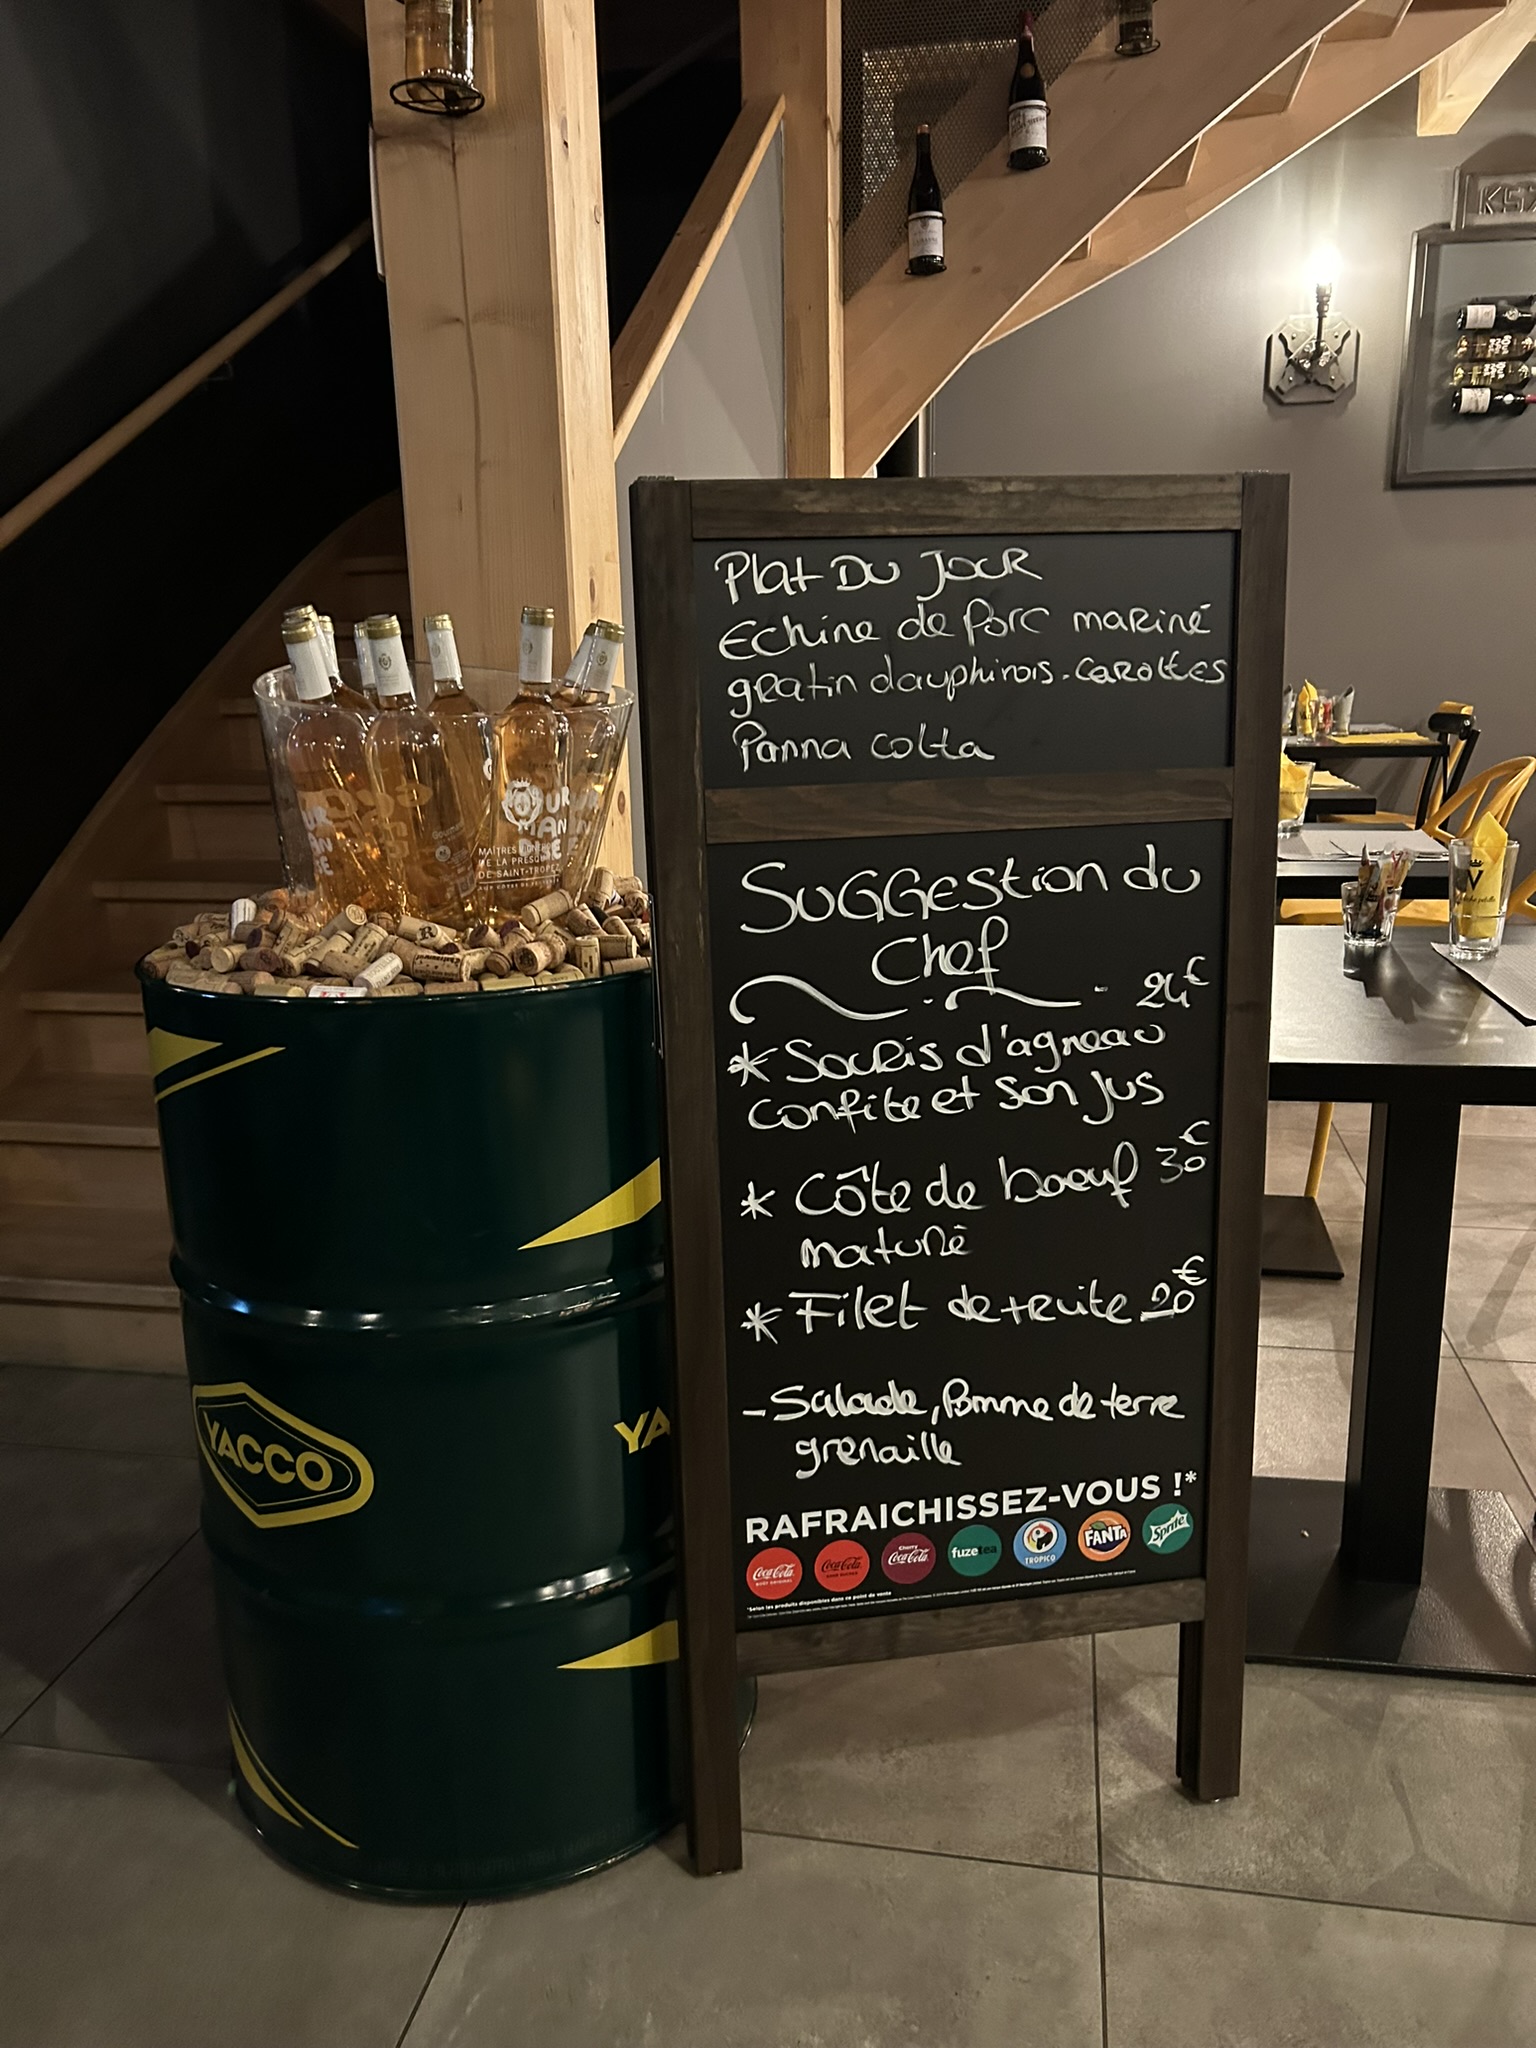 Plat Du Jour
Echine de porc mariné
gratin dauphinois. carottes
Panna cotta
SUGGestion du
Chef
24€
* Souris d'agneau
confite et son jus
* Côte de boeuf 30€
maturé
* Filet de truite 20€
- Salade, Pomme de terre
grenaille
RAFRAICHISSEZ-VOUS !*
Coca-Cola
Coca-Cola
Cherry
Coca-Cola
fuzetea
TROPICO
FANTA
Sprite
*Selon les produits disponibles dans ce point de vente
MAÎTRES
DE LA PRESQU
DE SAINT-TROPEZ
YACCO
YA
KS
V